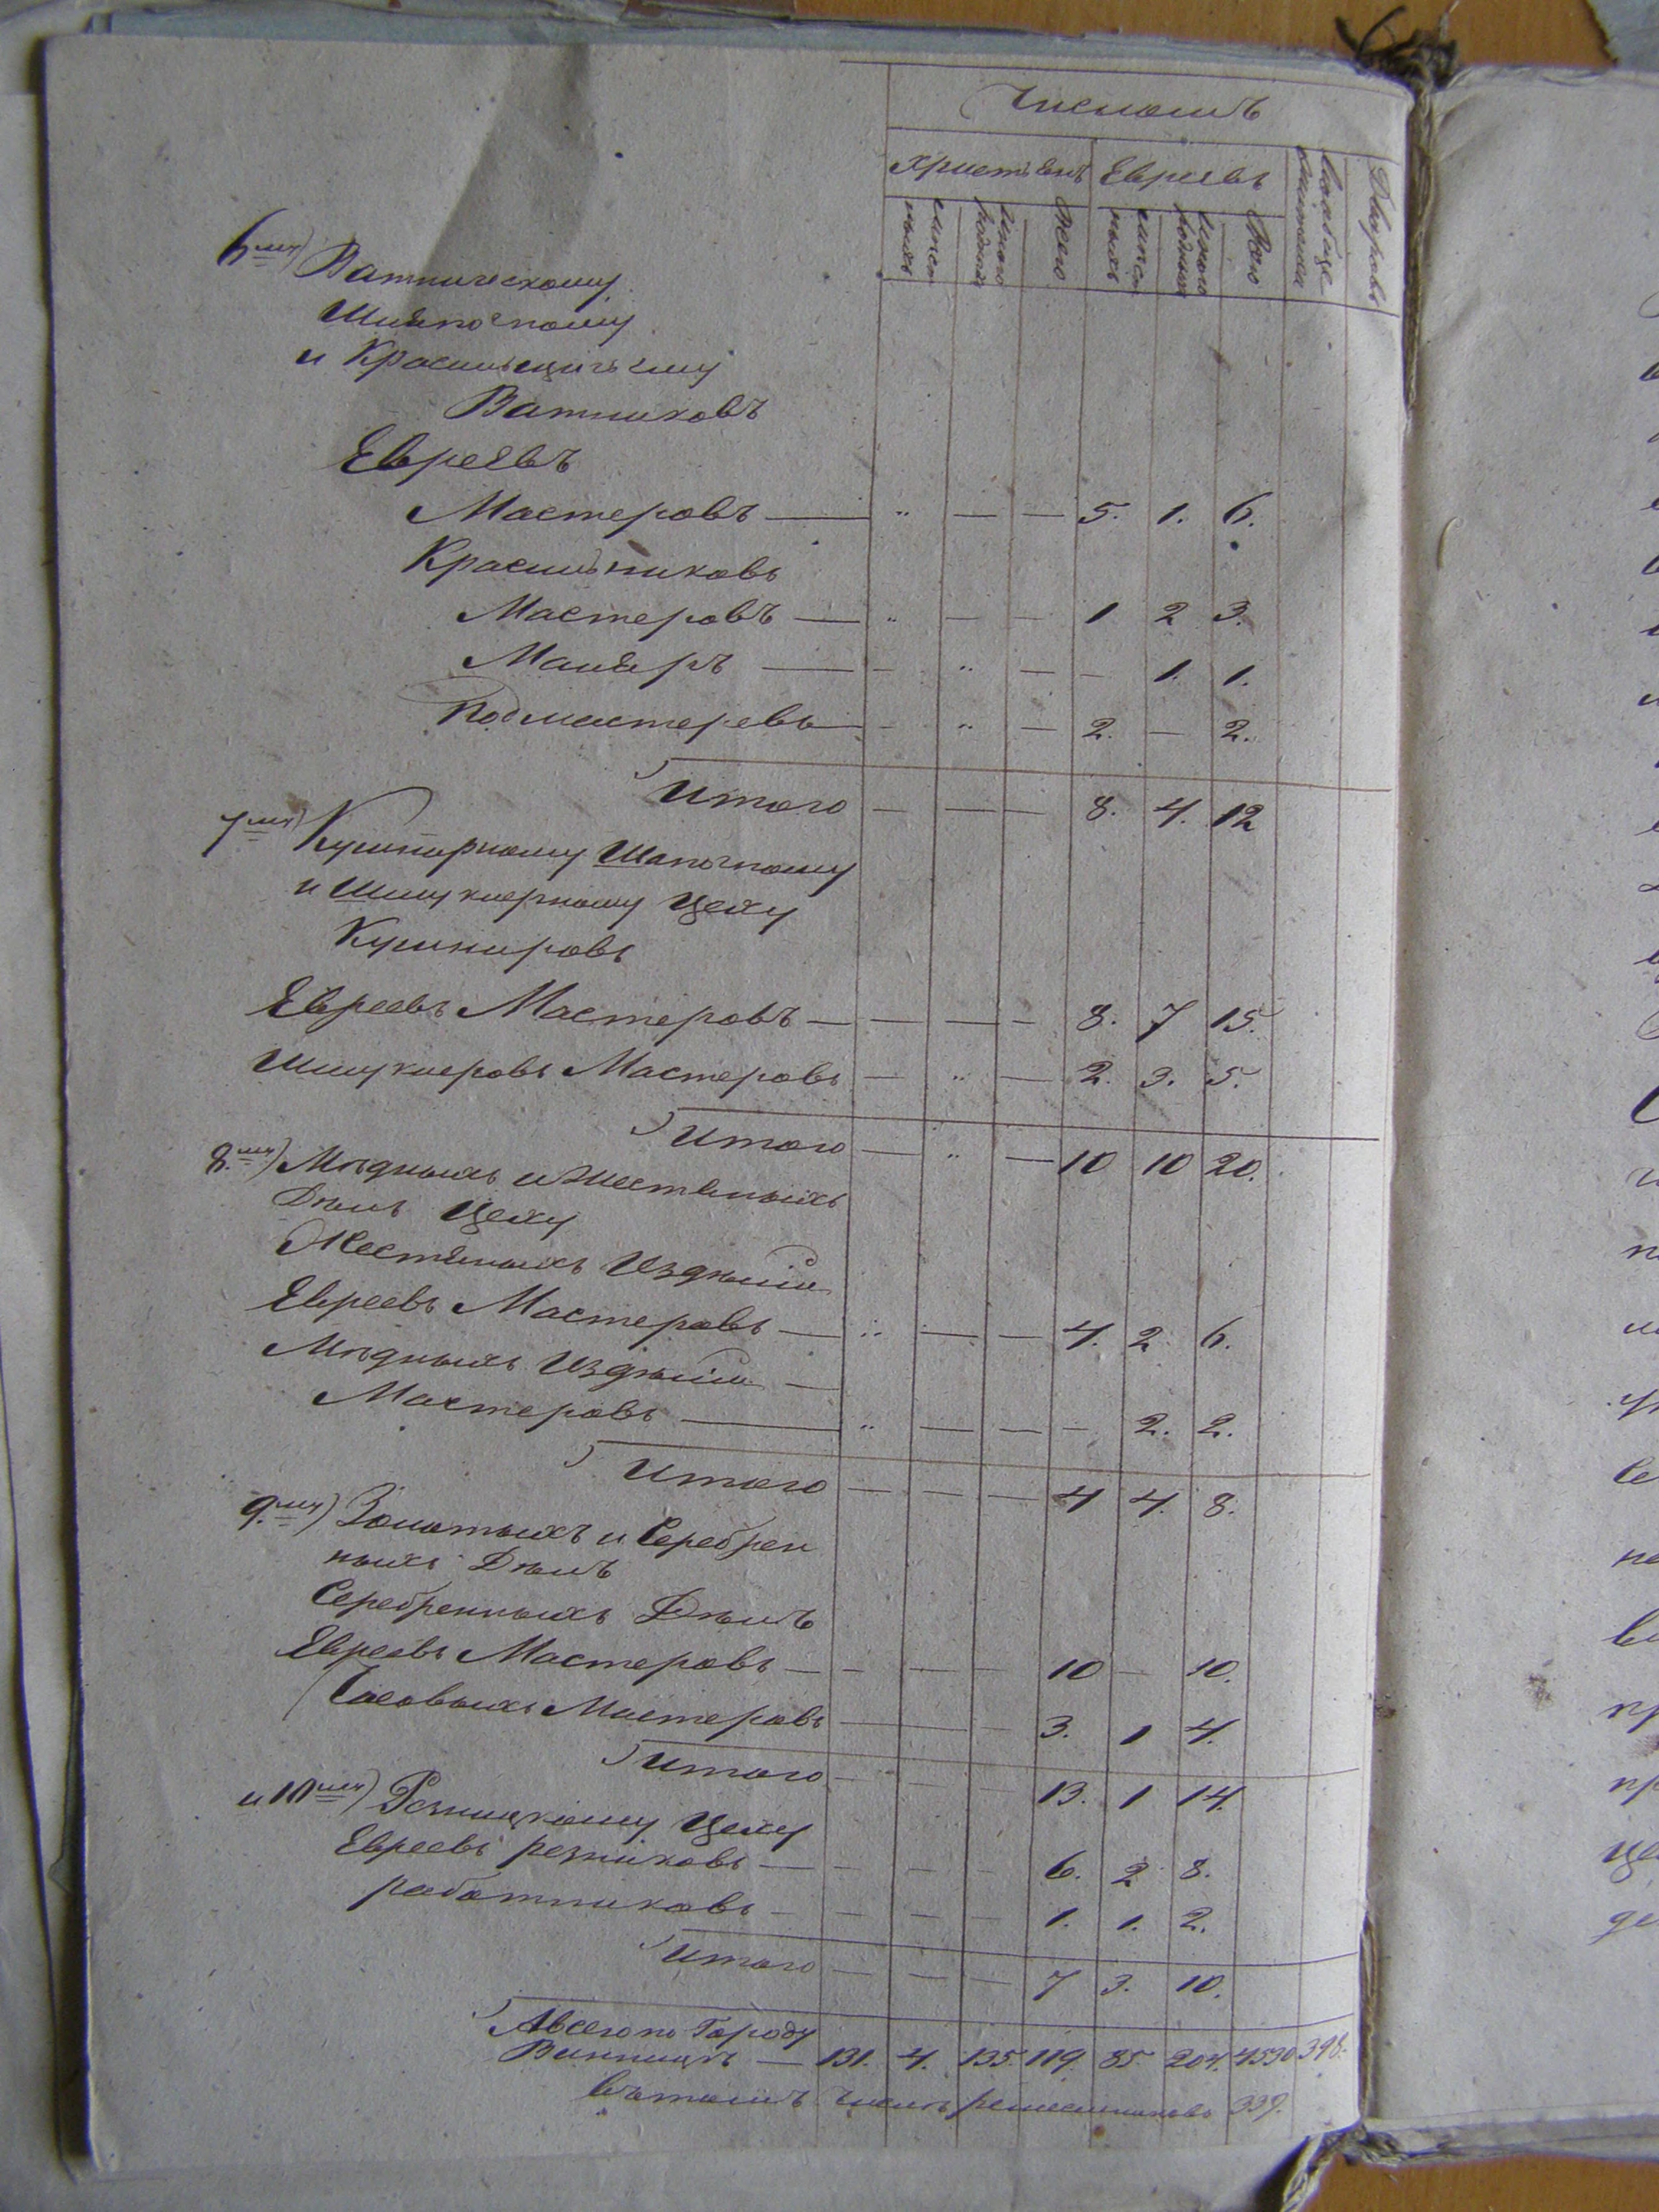 Числомъ
Христіянъ Евреевъ Вообще жителей Дворовъ
мѣстныхъ иногородныхъ всего мѣстныхъ иногородныхъ всего
6мъ) Ватническому
Шляпочному
и Красильщическому
Ватниковъ
Евреевъ
Мастеровъ — „ — — 5. 1. 6.
Красильниковъ
Мастеровъ — „ — — 1 2 3.
Маляръ — — „ — — 1. 1.
Подмастеревъ — „ — 2. — 2.
Итого — — — 8. 4. 12
7мъ) Кушнирному Шапочному
и Шмуклерному Цеху
Кушнировъ
Евреевъ Мастеровъ — — — — 8. 7 15.
Шмуклеровъ Мастеровъ — „ — 2. 3. 5.
Итого — „ — 10 10 20.
8.мъ) Мѣдныхъ и Жестяныхъ
Дѣлъ Цеху
Жестяныхъ Издѣлій
Евреевъ Мастеровъ — „ — — 4. 2 6.
Мѣдныхъ Издѣлій —
Мастеровъ — „ — — — 2. 2.
Итого — — — 4 4. 8.
9.мъ) Золотыхъ и Серебрен
ныхъ Дѣлъ
Серебренныхъ Дѣлъ
Евреевъ Мастеровъ — — — — 10 — 10.
Часовыхъ Мастеровъ — — — 3. 1 4.
Итого — — — 13. 1 14.
и 10мъ) Резницкому Цеху
Евреевъ резниковъ — — — — 6. 2 8.
работниковъ — — — — 1. 1. 2.
Итого — — — 7 3. 10.
А всего по Городу
Винницѣ — 131. 4. 135. 119. 85. 204. 4530 398.
Въ томъ числѣ ремесленниковъ 339.